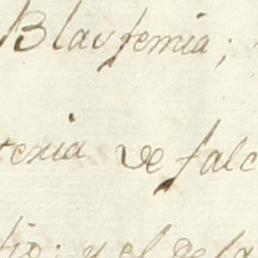 Blasfemia;
de falc
y el de la